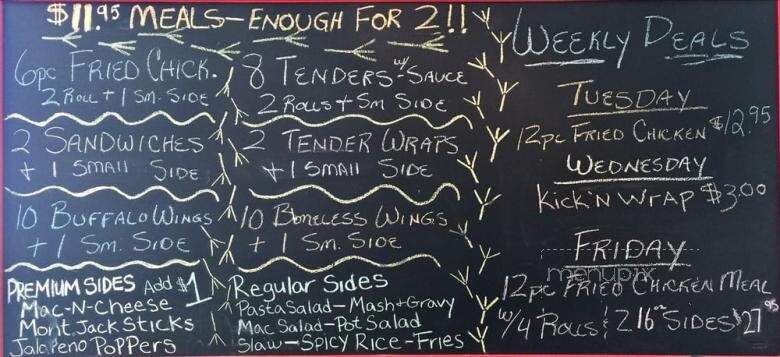 $11.95 MEALS-ENOUGH FOR 2!!
6pc FRIED CHICK.
2 ROLL + 1 SM. SIDE
8 TENDERS w/ SAUCE
2 ROLLS + SM SIDE
2 SANDWICHES
+ 1 SMALL SIDE
2 TENDER WRAPS
+ 1 SMALL SIDE
10 BUFFALO WINGS
+ 1 SM. SIDE
10 BONELESS WINGS
+ 1 SM. SIDE
PREMIUM SIDES Add $1
Mac-N-Cheese
Mont. Jack Sticks
Jalepeno Poppers
Regular Sides
Pasta Salad-Mash+Gravy
Mac Salad-Pot Salad
Slaw-Spicy Rice-Fries
WEEKLY DEALS
TUESDAY
12pc FRIED CHICKEN $12.95
WEDNESDAY
KICK'N WRAP $3.00
FRIDAY
menupix
12pc FRIED CHICKEN MEAL
w/4 ROLLS & 2 16oz SIDES $27.95